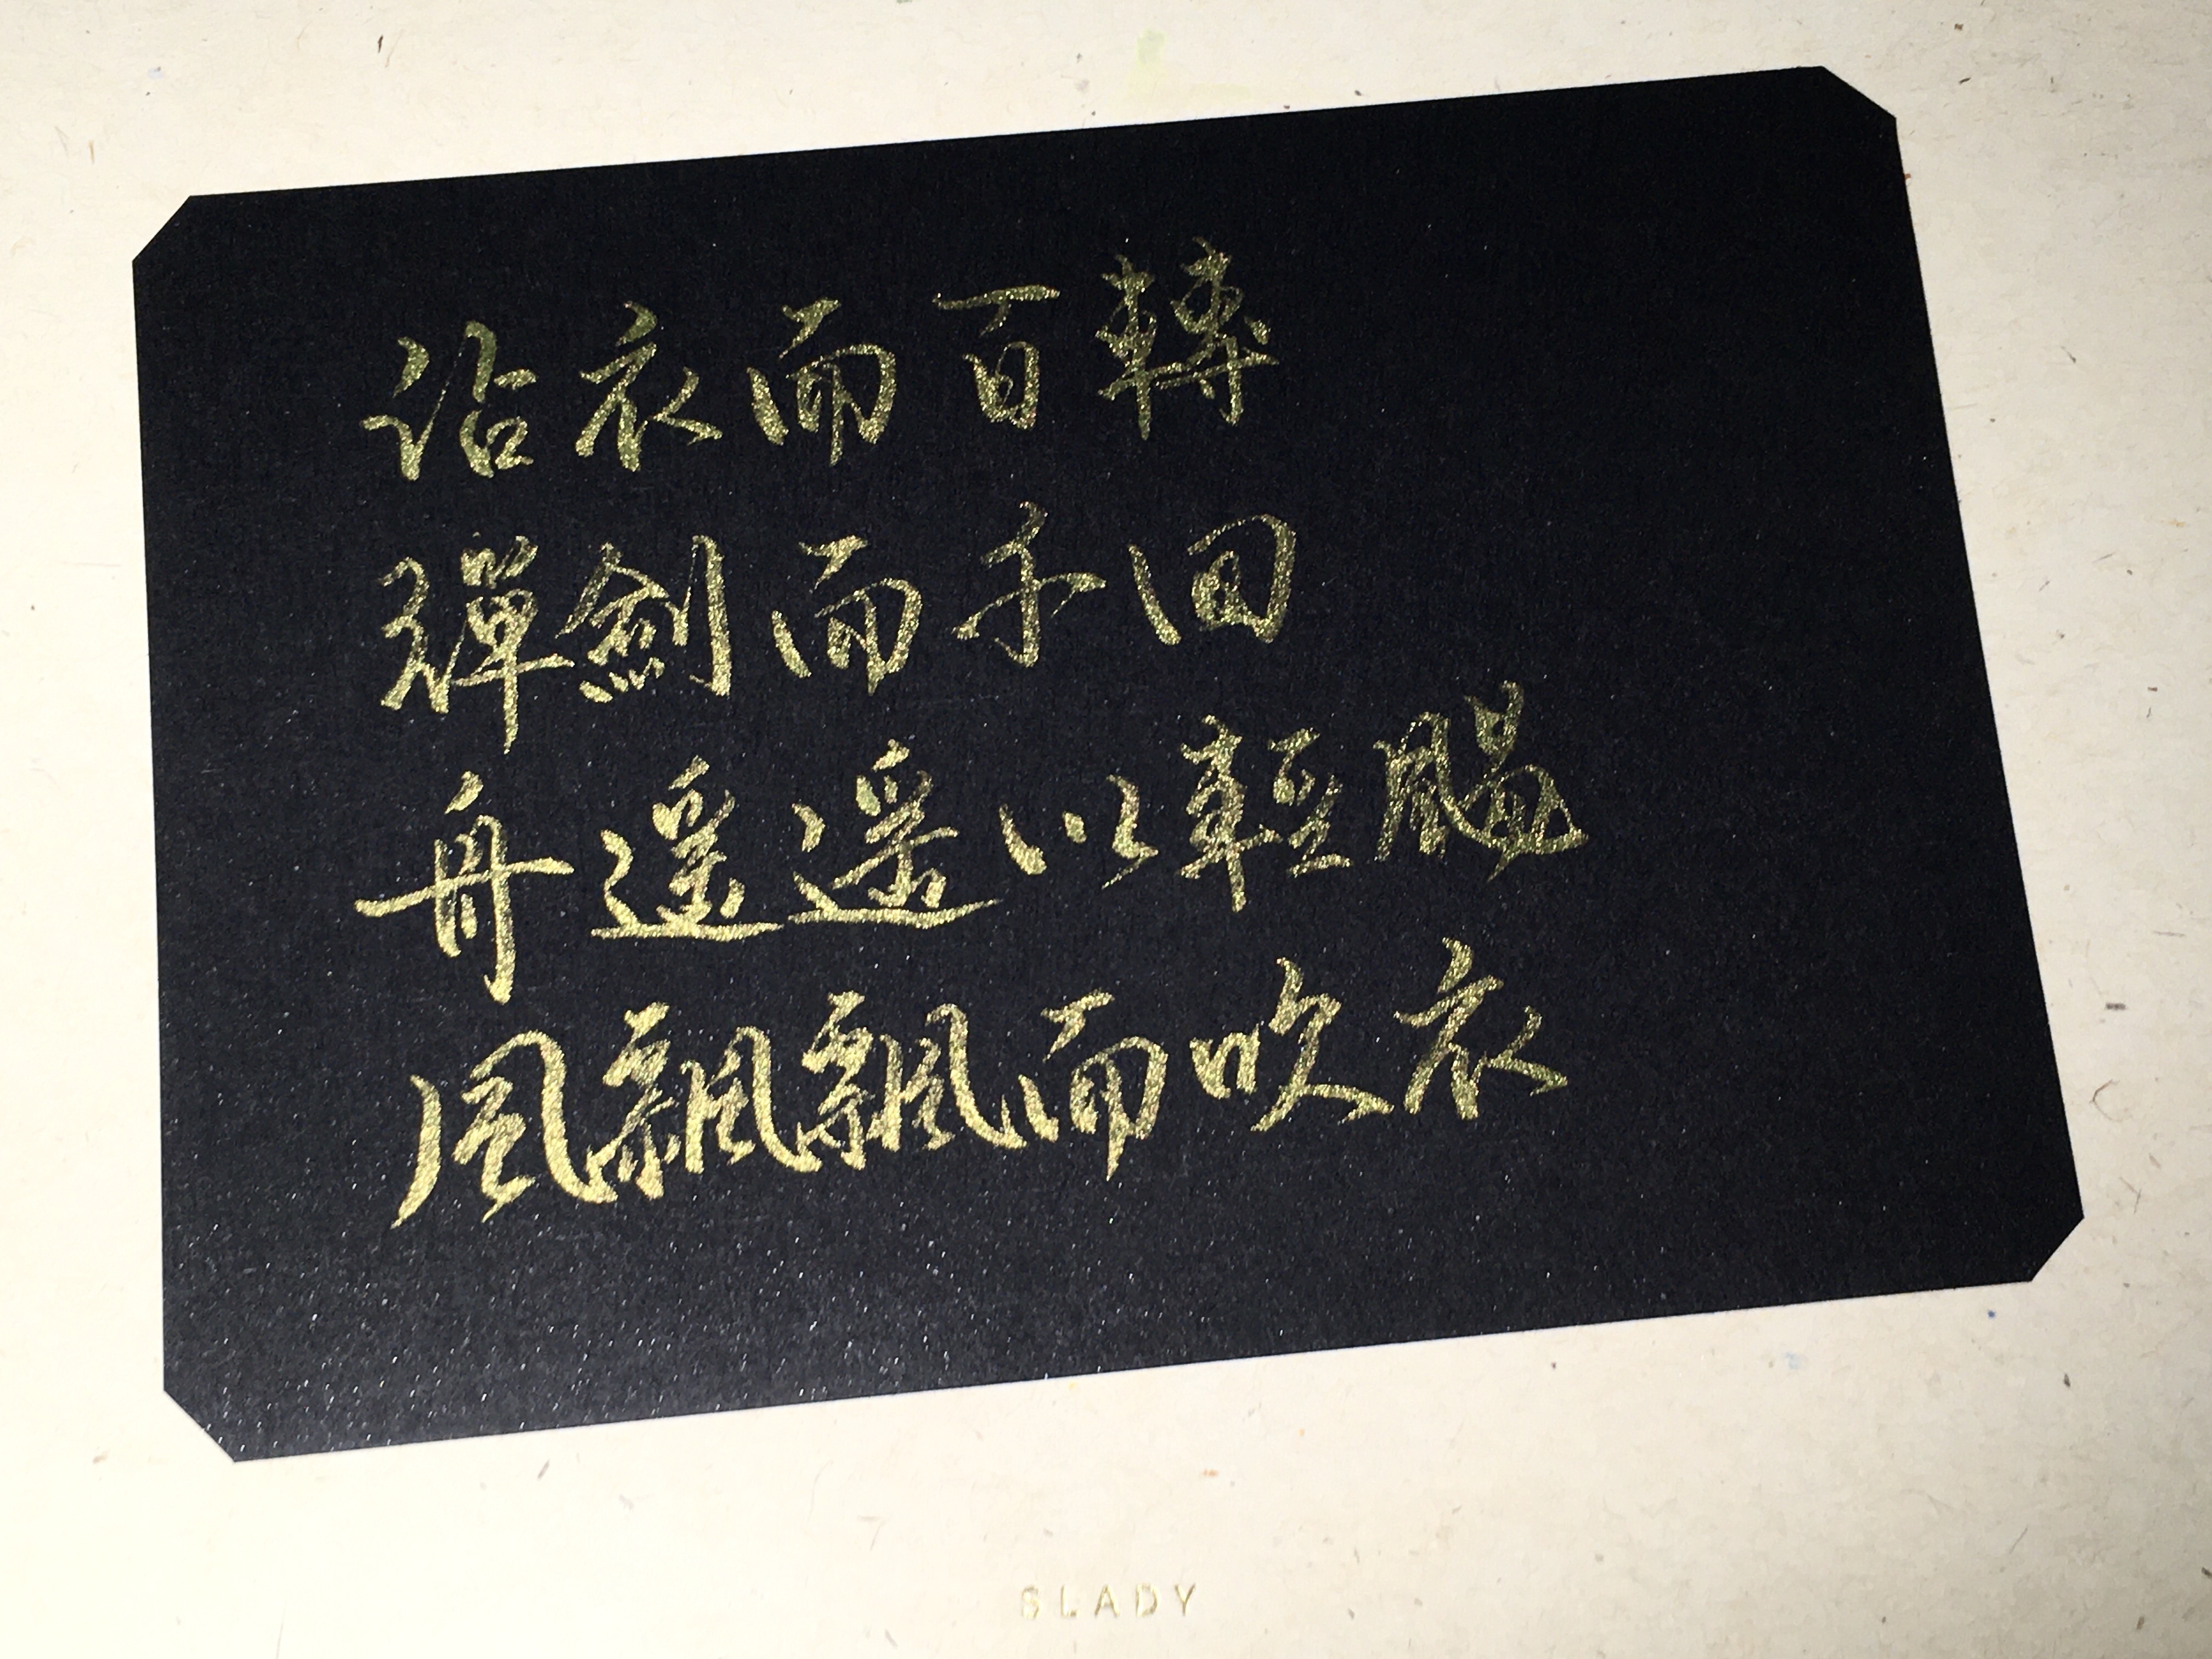 衣而百轉
彈劍而千回
舟遥遥以輕颺
風飄飄而吹衣
SLADY